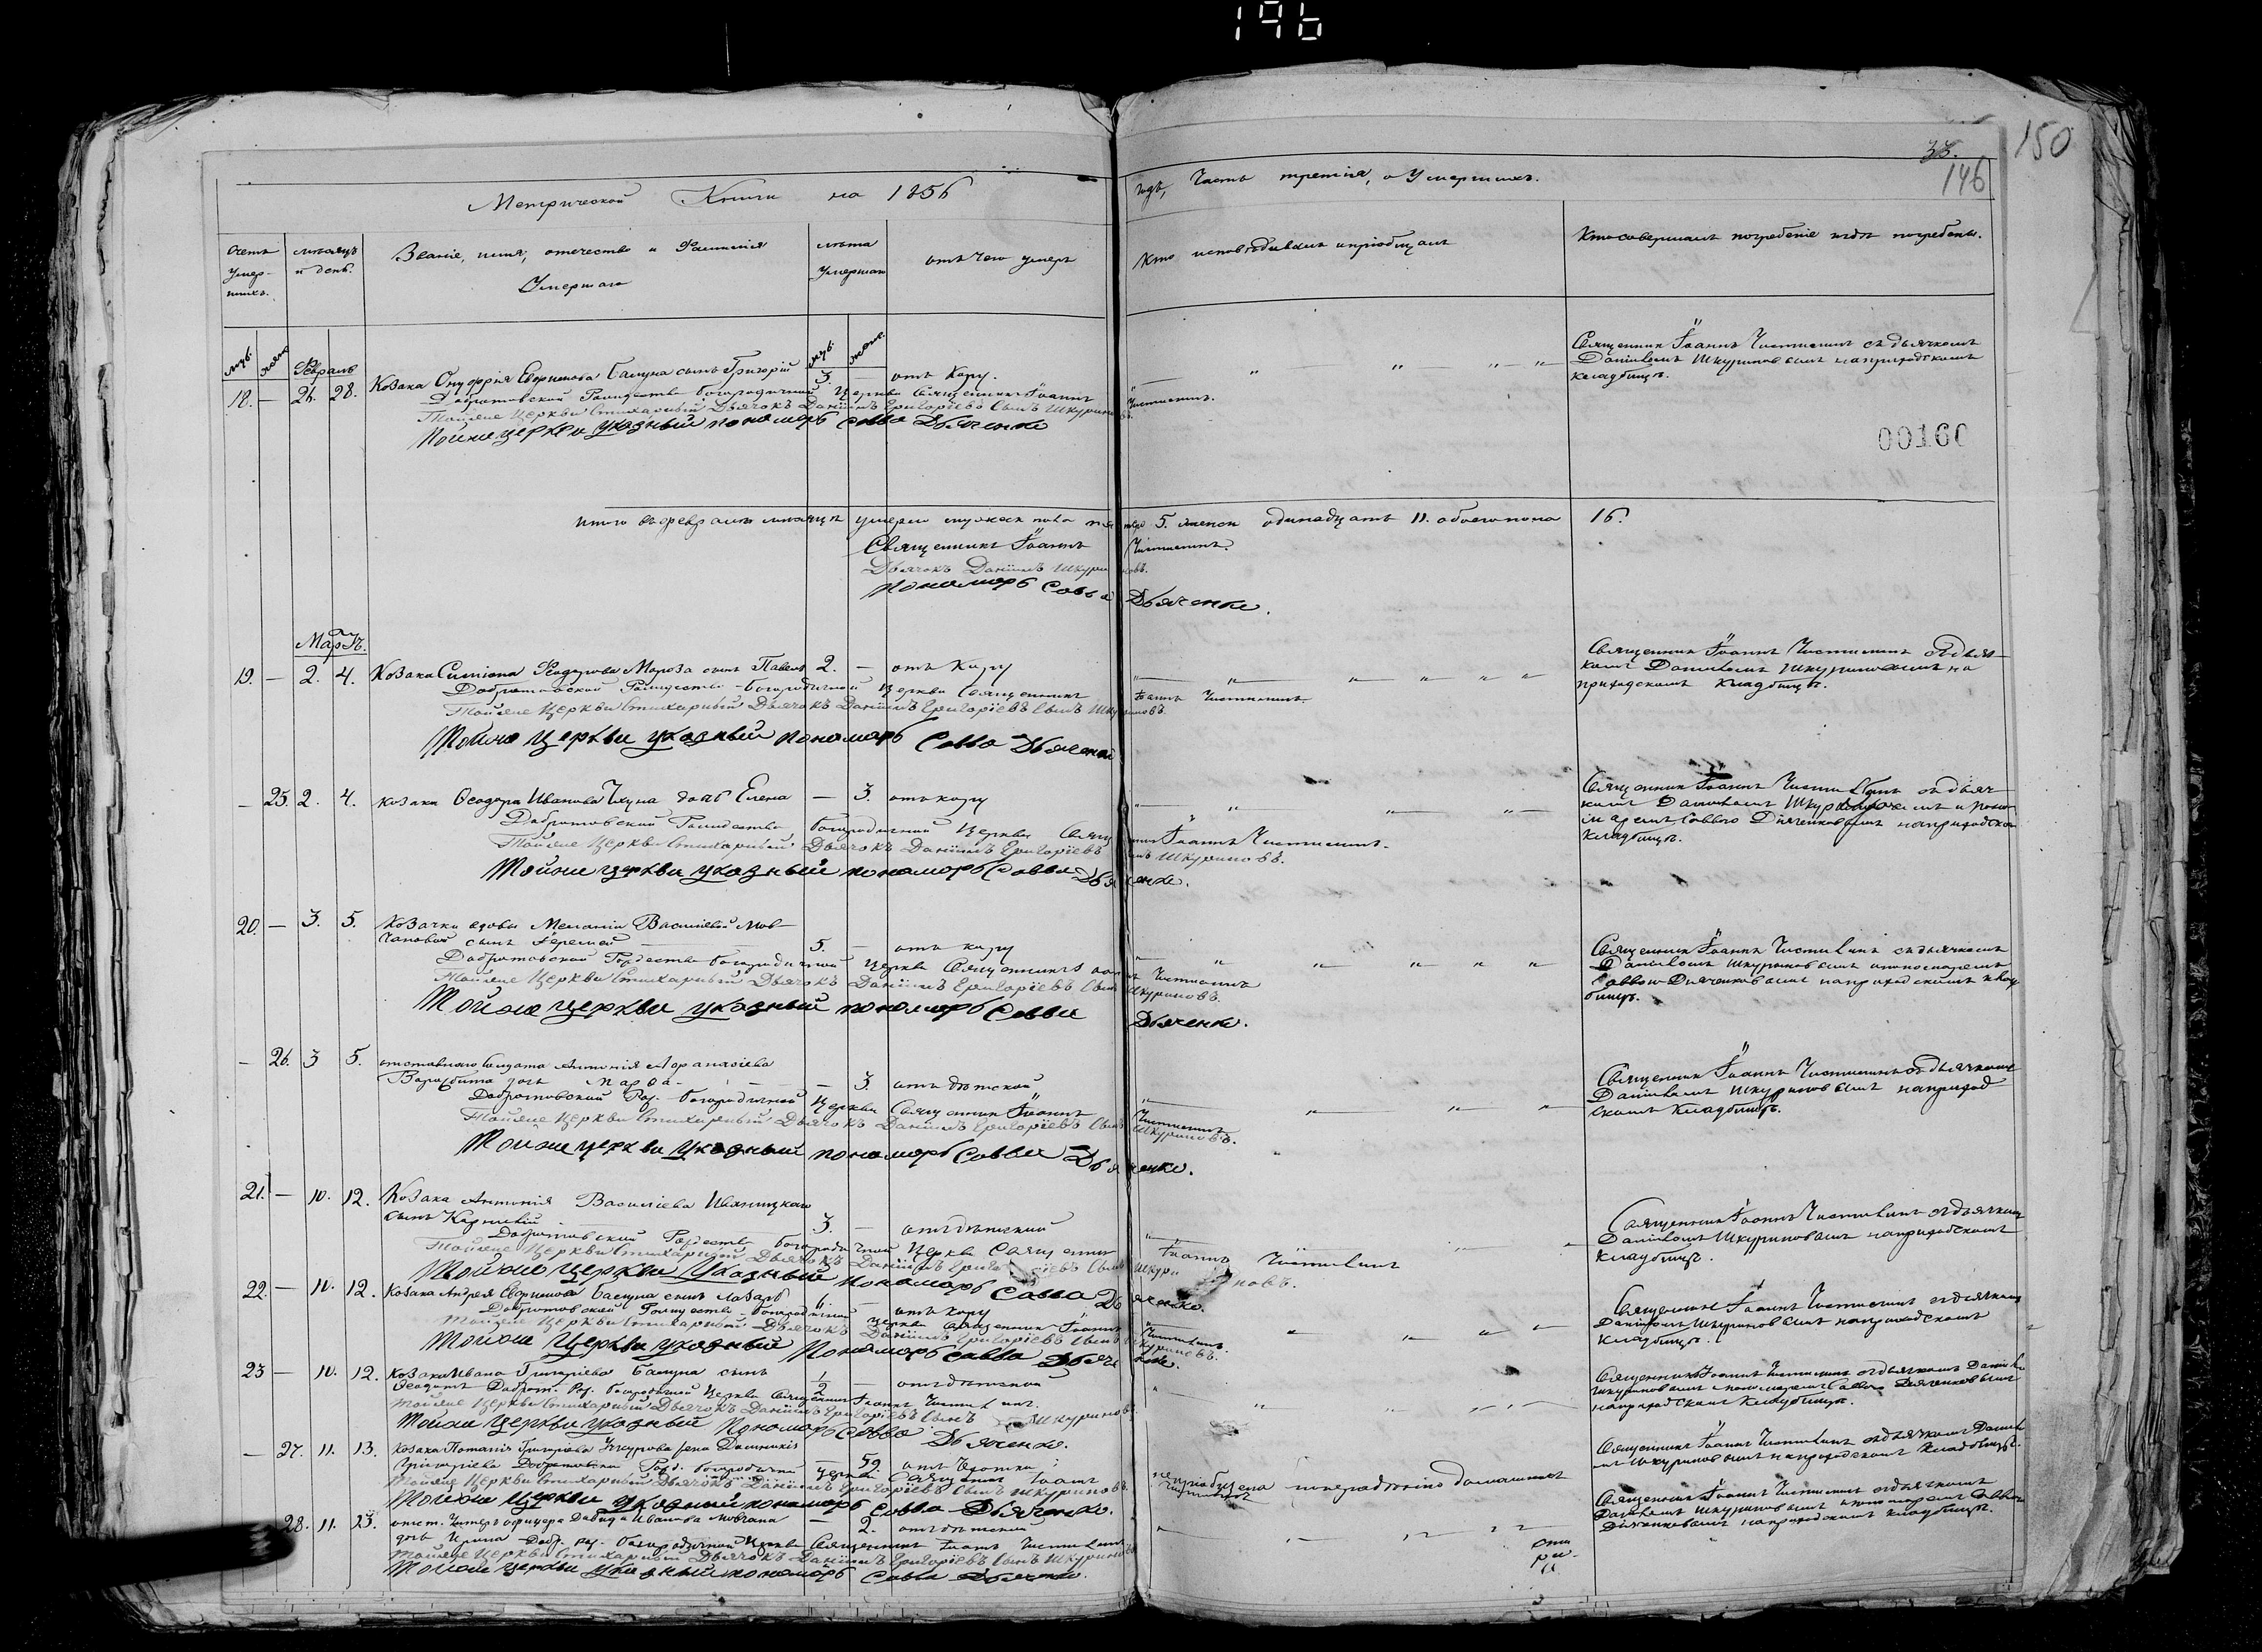 196
150
33.
146
Метрической Книги на 1856
годъ, Часть третія, о Умершихъ.
Счетъ умер-
шихъ.
мѣсяцъ
и день.
Званіе, имя, отечество и Фамилія
Умершаго
лѣта
умершаго
отъ чего умеръ
Кто исповѣдывалъ и пріобщалъ
Кто совершалъ погребеніе и гдѣ погребены.
муж. женс. Февраль муж. женс.
18. — 26. 28. Козака Онуфрія Евфимова Бацуна сынъ Григорій 3. — отъ кору.
Священникъ Іоаннъ Чистилинъ съ дьячкомъ
Даніиломъ Шкуриновымъ на приходскомъ
кладбищѣ.
Добротовской Рождество Богородичной Церкви Священникъ Іоаннъ Чистилинъ.
Тойже Церкви Стихарный Дьячокъ Даніилъ Григоріевъ Сынъ Шкуриновъ.
Тойже церкви указный пономарь Савва Дьяченко
00160
Итого въ февралѣ мѣсяцѣ умерло мужеска пола пять 5. женск одинадцать 11. обоего пола 16.
Священникъ Іоаннъ Чистилинъ.
Дьячокъ Даніилъ Шкуриновъ.
Пономарь Савва Дьяченко.
Мартъ.
19. — 2. 4. Козака Симіона Федорова Мороза сынъ Павелъ 2. — отъ кору
Священникъ Іоаннъ Чистилинъ съ дьяч-
комъ Даніиломъ Шкуриновымъ на
приходскомъ кладбищѣ.
Добротовской Рождество-Богородичной Церкви Священникъ Іоаннъ Чистилинъ.
Тойже Церкви Стихарный Дьячокъ Даніилъ Григоріевъ Сынъ Шкуриновъ.
Тойже Церкви указный пономарь Савва Дьяченко
— 25. 2. 4. Козака Ѳеодора Иванова дочь Елена — 3. отъ кору
Священникъ Іоаннъ Чистилинъ съ дьяч-
комъ Даніиломъ Шкуриновымъ и поно-
маремъ Саввою Дьяченковымъ на приходском
кладбищѣ.
Добротовской Рождество Богородичной Церкви Священникъ Іоаннъ Чистилинъ.
Тойже Церкви Стихарный Дьячокъ Даніилъ Григоріевъ Сынъ Шкуриновъ.
Тойже церкви указный пономарь Савва Дьяченко.
20. — 3. 5. Козачки вдовы Меланіи Василіевой Мов-
чановой сынъ Іеремей 5. — отъ кору
Священникъ Іоаннъ Чистилинъ съ дьячкомъ
Даніиломъ Шкуриновымъ и пономаремъ
Саввою Дьяченковымъ на приходскомъ клад-
бищѣ.
Добротовской Рождество Богородичной Церкви Священникъ Іоаннъ Чистилинъ
Тойже Церкви Стихарный Дьячокъ Даніилъ Григоріевъ Сынъ Шкуриновъ.
Тойже церкви указный пономарь Савва Дьяченко.
— 26. 3 5. отставнаго Солдата Антонія Афанасіева
дочь Марѳа — 3 отъ дѣтской
Священникъ Іоаннъ Чистилинъ съ дьячкомъ
Даніиломъ Шкуриновымъ на приход
скомъ кладбищѣ.
Добротовской Рож. Богородичной Церкви Священникъ Іоаннъ Чистилинъ
Тойже Церкви Стихарный Дьячокъ Даніилъ Григоріевъ Сынъ Шкуриновъ.
Тойже церкви указный пономарь Савва Дьяченко.
21. — 10. 12. Козака Антонія Василіева Иваницкаго
сынъ Корнилій 3. — отъ дѣтской
Священникъ Іоаннъ Чистилинъ съ дьячком
Даніиломъ Шкуриновымъ на приходскомъ
кладбищѣ.
Добротовской Рождество Богородичной Церкви Священникъ Іоаннъ Чистилинъ
Тойже Церкви Стихарный Дьячокъ Даніилъ Григоріевъ Сынъ Шкуриновъ.
Тойже Церкви Указный Пономарь Савва Дьяченко.
22. — 10. 12. Козака Андрея Евфимова Бацуна сынъ Лазарь — отъ кору
Священникъ Іоаннъ Чистилинъ съ дьячком
Даніиломъ Шкуриновымъ на приходскомъ
кладбищѣ.
Добротовской Рождество-Богородичной Церкви Священникъ Іоаннъ Чистилинъ.
Тойже Церкви Стихарный Дьячокъ Даніилъ Григоріевъ Сынъ Шкуриновъ.
Тойже Церкви указный Пономарь Савва Дьяченко.
23 — 10. 12. Козака Ивана Григоріева Бацуна сынъ 1/2 — отъ дѣтской
Священникъ Іоаннъ Чистилинъ съ дьячкомъ Даніило
Шкуриновымъ и пономаремъ Саввою Дьяченковымъ
на приходскомъ кладбищѣ.
Ѳеодотъ Доброт. Рож. Богородичной Церкви Священникъ Іоаннъ Чистилинъ.
Тойже Церкви Стихарный Дьячокъ Даніилъ Григоріевъ Сынъ Шкуриновъ.
Тойже Церкви указный Пономарь Савва Дьяченко.
— 27. 11. 13. Козака Потапія Григоріева жена
Григоріева — 59 отъ
не пріобщена
Священникъ Іоаннъ Чистилинъ съ дьячкомъ Даніил
омъ Шкуриновымъ на приходскомъ кладбищѣ.
Добротовской Рожд. Богородичной Церкви Священникъ Іоаннъ Чистилинъ
Тойже Церкви Стихарный Дьячокъ Даніилъ Григоріевъ Сынъ Шкуриновъ.
Тойже Церкви Указный пономарь Савва Дьяченко.
28. 11. 13. отст. Унтеръ офицера Давида Иванова Мовчана — 2. отъ дѣтской
Священникъ Іоаннъ Чистилинъ съ дьячкомъ
Даніиломъ Шкуриновымъ и пономаремъ Саввою
Дьяченковымъ на приходскомъ кладбищѣ.
дочь Ирина Добр. Рож. Богородичной Церкви Священникъ Іоаннъ Чистилинъ
Тойже Церкви Стихарный Дьячокъ Даніилъ Григоріевъ Сынъ Шкуриновъ
Тойже Церкви указный пономарь Савва Дьяченко.